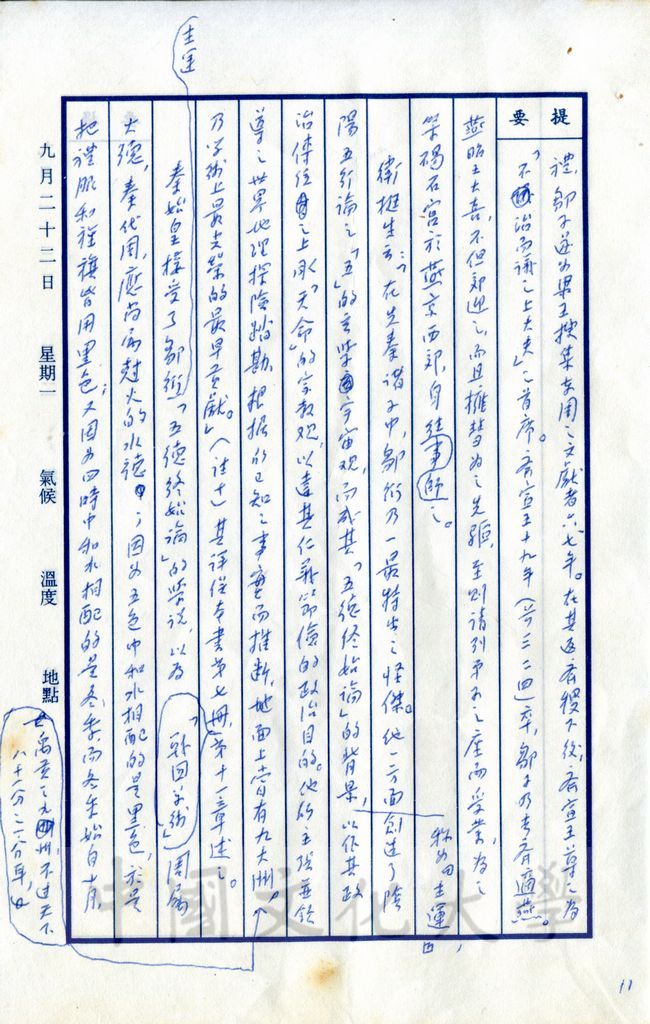 提要
禮,鄒子遂為梁王搜集有關之文獻者六、七年。在其返齊稷下後,齊宣王尊之為
「不治而議之上大夫」之首席。齊宣王十九年(公三二四)卒,鄒子乃去齊適燕。
燕昭王大喜,不但郊迎之,而且擁彗為之先驅,至則請列弟子之座而受業,為之
築碣石宮於燕京西郊,身往事師之。
衛挺生云:「在先秦諸子中,鄒衍乃一最特出之怪傑。他一方面創造了陰
陽五行論之「五」的玄學宇宙觀,而成其「五德終始論」的背景,以作其政
稱為主運
治傳位之上承「天命」的宗教觀,以達其仁義節儉的政治目的。他的主張兼領
導之世界地理探險踏勘,根據的已知之事實而推斷,地面上當有九大洲,
乃學術上最光榮的最早貢獻。」(註十)其詳從本書第七冊「戰國學術」第十一章述之。
秦始皇接受了鄒衍「五德終始論」的學說,以為周屬
主運
火德,秦代周,應當屬剋火的水德;因為五色中和水相配的是黑色,於是
把禮服和旌旗皆用黑色;又因為四時中和水相配的是冬季,而冬季始自十月
九月二十二日 星期一 氣候 溫度 地點
禹貢之九州不過天下
八十一分之一分耳,
中國文化大學
11